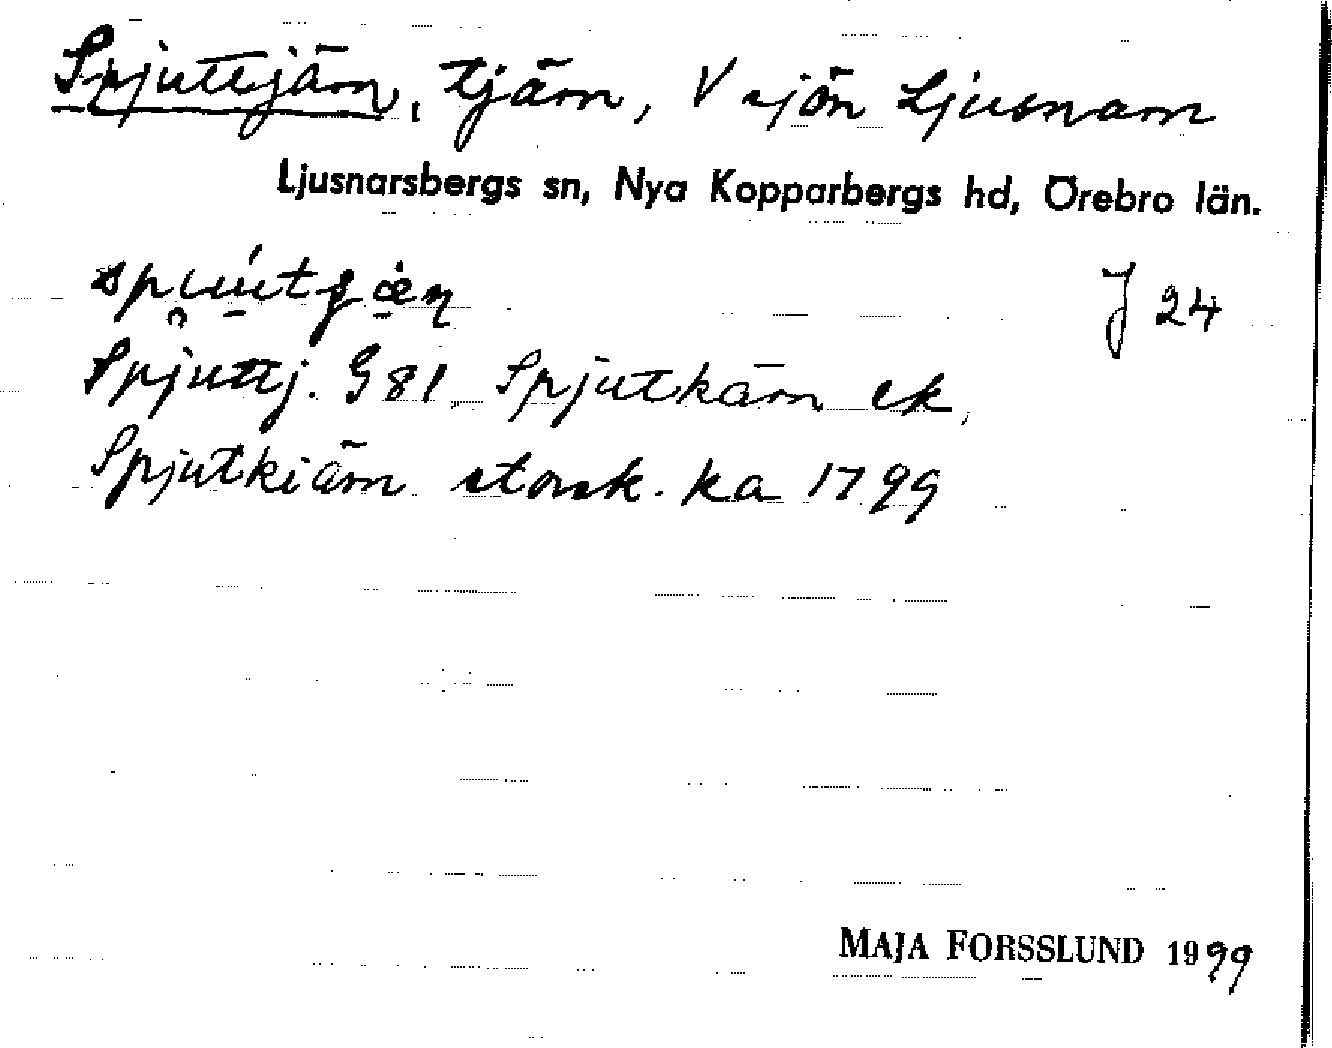 Spjuttjärn, tjärn, V sjön Ljusnarn
Ljusnarsbergs sn, Nya Kopparbergs hd, Örebro län.
J 24
Spjuttj. G 81, Spjutkärn ek,
Spjutkiärn storsk. ka 1799
MAJA FORSSLUND 1999